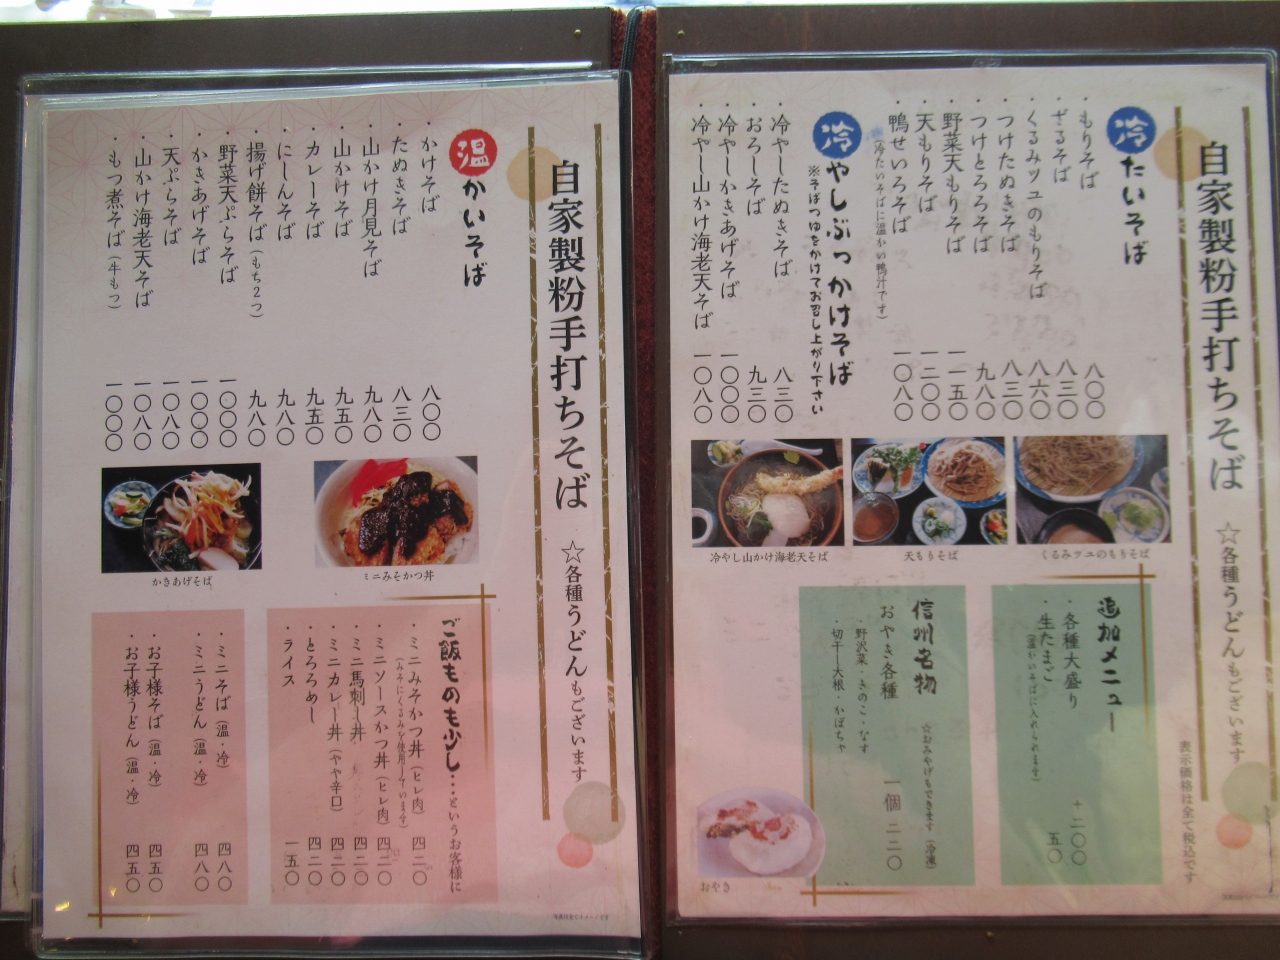 自家製粉手打ちそば ☆各種うどんもございます
表示価格は全て税込です
冷たいそば
・もりそば 八〇〇
・ざるそば 八三〇
・くるみツユのもりそば 八六〇
・つけたぬきそば 八三〇
・つけとろろそば 九八〇
・野菜天もりそば 一一五〇
・天もりそば 一二〇〇
・鴨せいろそば 一〇八〇
(冷たいそばに温かい鴨汁です)
冷やしぶっかけそば
※そばつゆをかけてお召し上がり下さい
・冷やしたぬきそば 八三〇
・おろしそば 九三〇
・冷やしかきあげそば 一〇〇〇
・冷やし山かけ海老天そば 一〇八〇
くるみツユのもりそば
天もりそば
冷やし山かけ海老天そば
追加メニュー
・各種大盛り +二〇〇
・生たまご 五〇
(温かいそばに入れられます)
信州名物 ☆おみやげもできます(冷凍)
おやき各種 一個 二二〇
・野沢菜・きのこ・なす
・切干し大根・かぼちゃ
おやき
自家製粉手打ちそば ☆各種うどんもございます
温かいそば
・かけそば 八〇〇
・たぬきそば 八三〇
・山かけ月見そば 九八〇
・山かけそば 九五〇
・カレーそば 九五〇
・にしんそば 九八〇
・揚げ餅そば(もち2つ) 九八〇
・野菜天ぷらそば 一〇〇〇
・かきあげそば 一〇〇〇
・天ぷらそば 一〇八〇
・山かけ海老天そば 一〇八〇
・もつ煮そば(牛もつ) 一〇〇〇
ミニみそかつ丼
かきあげそば
ご飯ものも少し…というお客様に
・ミニみそかつ丼(ヒレ肉) 四二〇
(みそにくるみを使用しています)
・ミニソースかつ丼(ヒレ肉) 四二〇
・ミニ馬刺し丼 四二〇
・ミニカレー丼(やや辛口) 四二〇
・とろろめし 四二〇
・ライス 一五〇
・ミニそば(温・冷) 四八〇
・ミニうどん(温・冷) 四八〇
・お子様そば(温・冷) 四五〇
・お子様うどん(温・冷) 四五〇